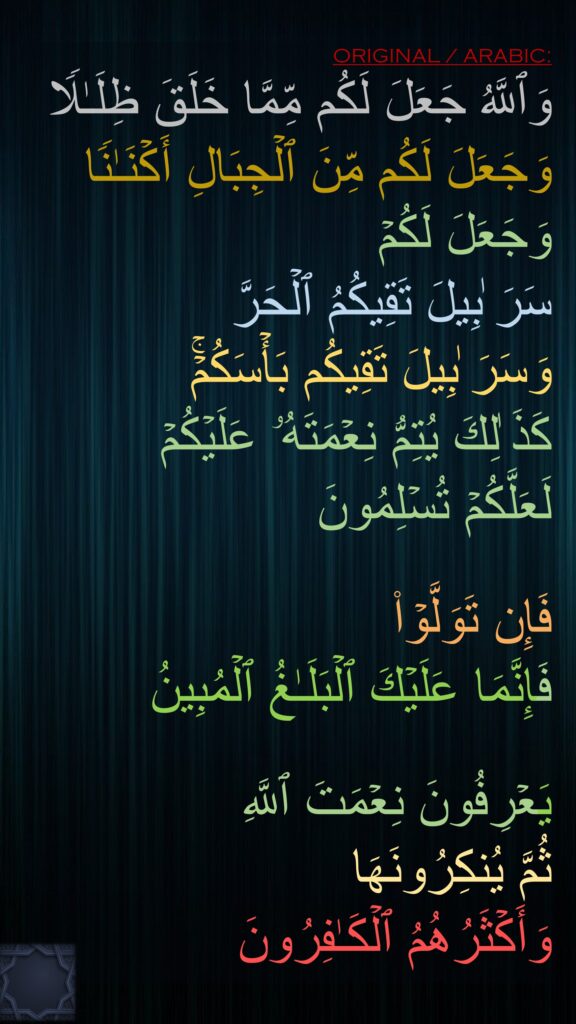 ORIGINAL / ARABIC:
وَٱللَّهُ جَعَلَ لَكُم مِّمَّا خَلَقَ ظِلَـٰلࣰا
وَجَعَلَ لَكُم مِّنَ ٱلۡجِبَالِ أَكۡنَـٰنࣰا
وَجَعَلَ لَكُمۡ
سَرَ ٰ⁠بِیلَ تَقِیكُمُ ٱلۡحَرَّ
وَسَرَ ٰ⁠بِیلَ تَقِیكُم بَأۡسَكُمۡۚ
كَذَ ٰ⁠لِكَ یُتِمُّ نِعۡمَتَهُۥ عَلَیۡكُمۡ
لَعَلَّكُمۡ تُسۡلِمُونَ
فَإِن تَوَلَّوۡا۟
فَإِنَّمَا عَلَیۡكَ ٱلۡبَلَـٰغُ ٱلۡمُبِینُ
یَعۡرِفُونَ نِعۡمَتَ ٱللَّهِ
ثُمَّ یُنكِرُونَهَا
وَأَكۡثَرُهُمُ ٱلۡكَـٰفِرُونَ